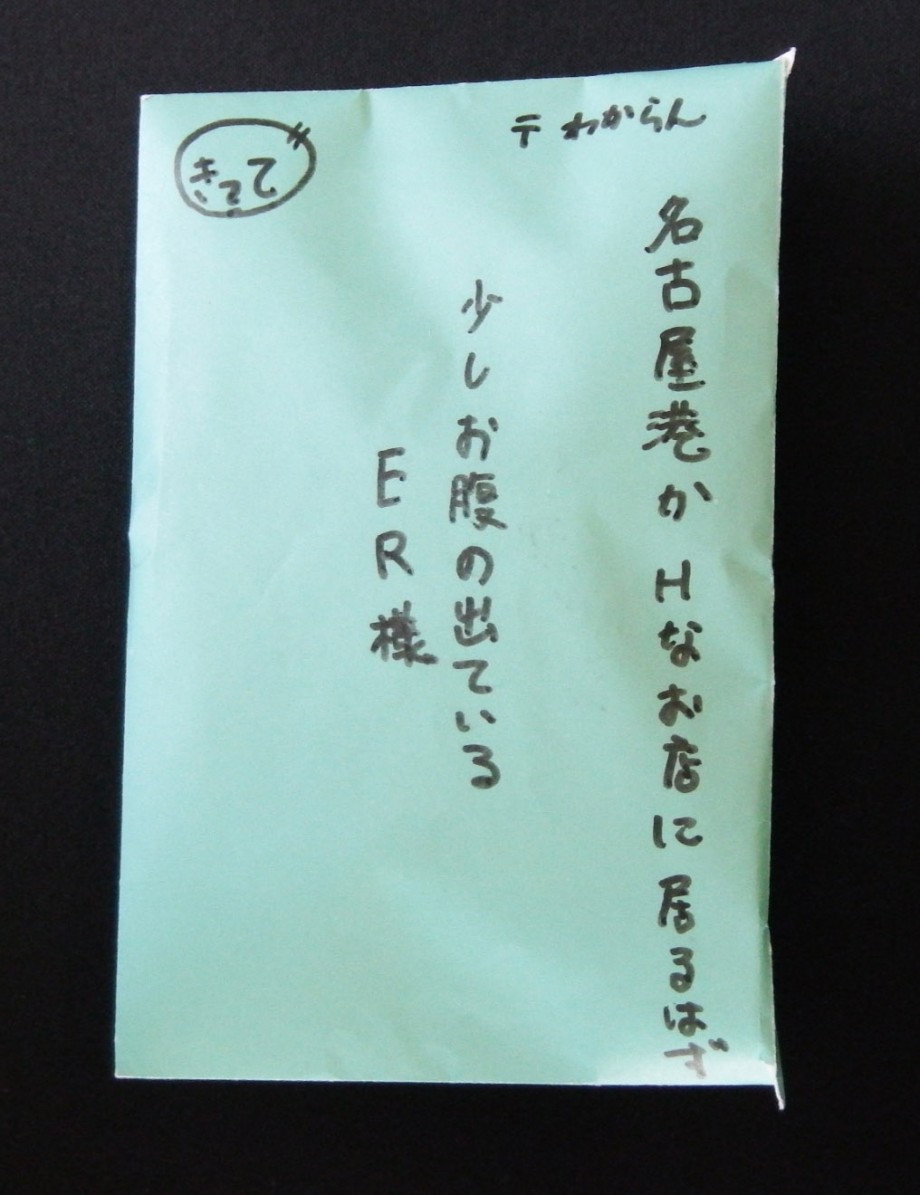 〒 わからん
名古屋港か Hなお店に居るはず
少しお腹の出ている
ER様
きって